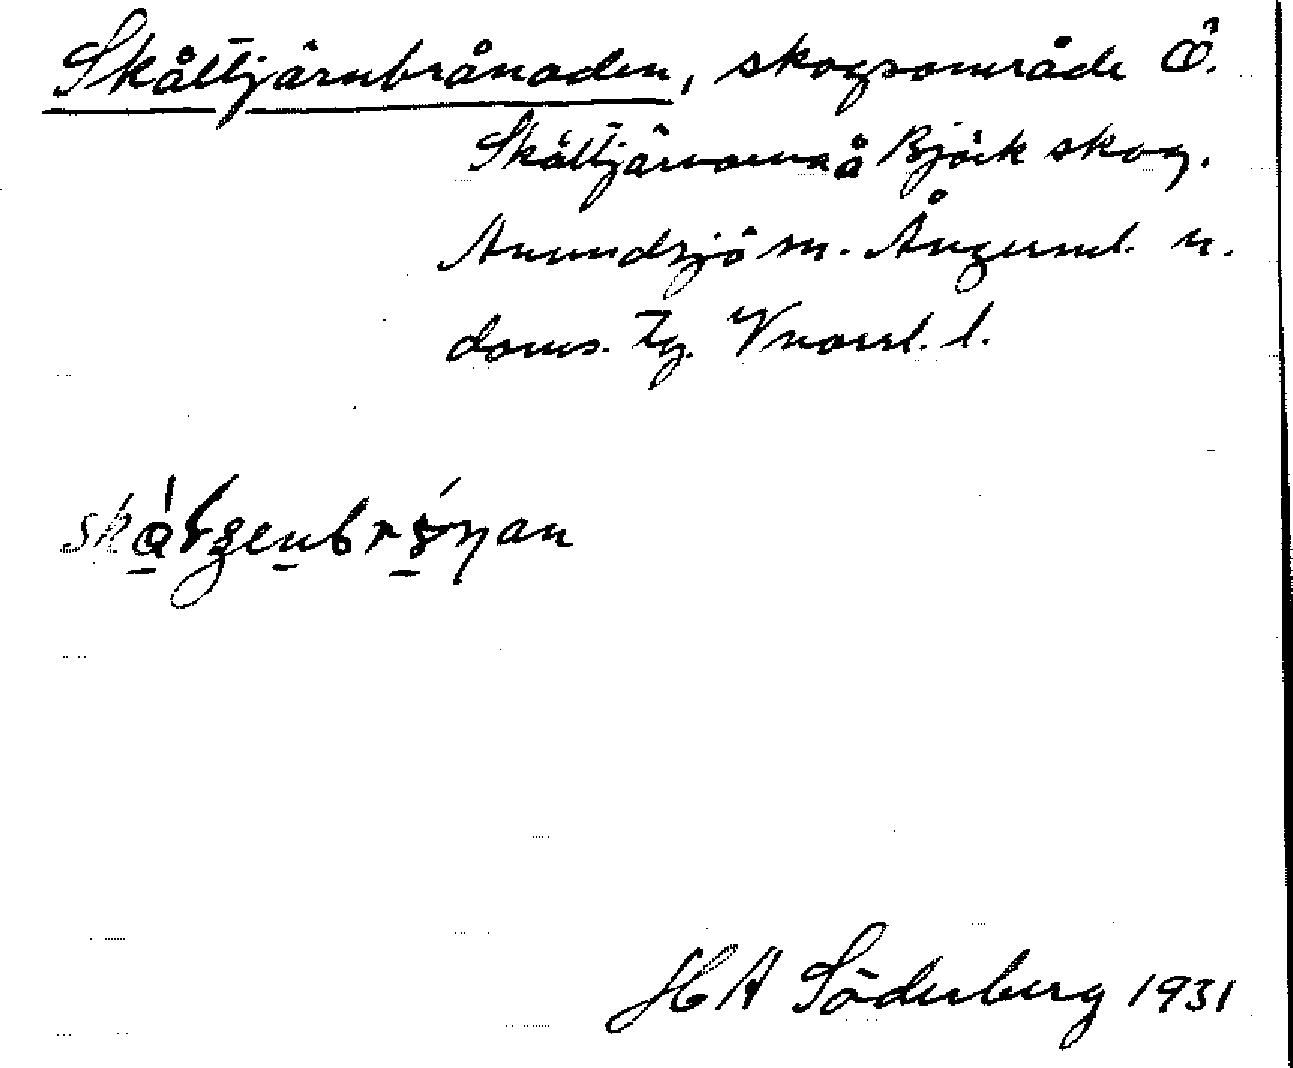 Skåltjärnbrånaden, skogsområde Ö.
Skåltjärnarna å Björk skog.
Anundsjö sn. Ångerml. n.
doms. Tg. Vnorrl. l.
H A Söderberg 1931